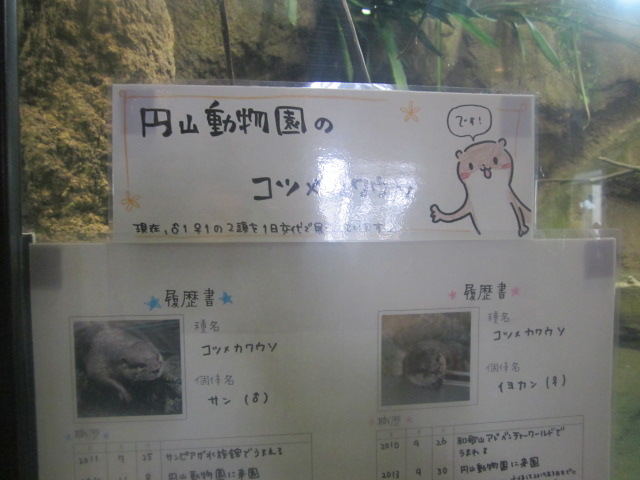 円山動物園の
です!
コツメカワウソ
現在、♂1♀1の2頭を1日交代で
履歴書
種名
コツメカワウソ
個体名
サン (♂)
職歴
2011 9 25 サンピアザ水族館でうまれる
円山動物園に来園
履歴書
種名
コツメカワウソ
個体名
イヨカン (♀)
職歴
2010 9 26 和歌山アドベンチャーワールドで
うまれる
2013 9 30 円山動物園に来園